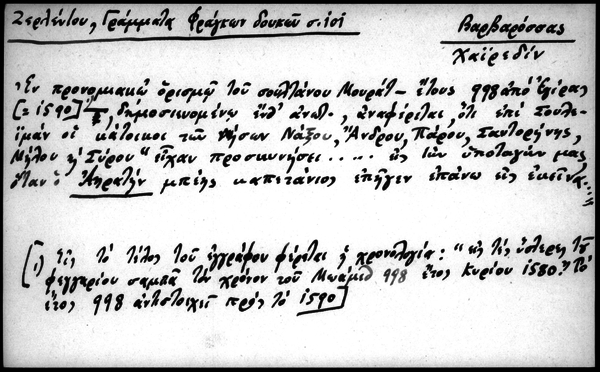 Ζερλέντου, Γράμματα Φράγκων δουκῶν σ. 101
Βαρβαρόσσας
Χαϊρεδίν
Ἐν προνομιακῷ ὁρισμῷ τοῦ σουλτάνου Μουράτ - ἔτους 998 ἀπό Ἐγίρας
[= 1590], δημοσιευομένῳ ἔνθ' ἀνωτ., ἀναφέρεται, ὅτι ἐπί Σουλε-
ϊμάν οἱ κάτοικοι τῶν νήσων Νάξου, Ἄνδρου, Πάρου, Σαντορήνης,
Μήλου ἤ Σύρου "εἶχαν προσκυνήσει ..... εἰς τήν ὑποταγήν μας
ὅταν ὁ Ἀηρατήν μπέης καπετάνιος ἐπῆγεν ἐπάνω εἰς ἐκεῖνα
[1) Εἰς τό τέλος τοῦ ἐγγράφου φέρεται ἡ χρονολογία: "εἰς τές ὕστερες τοῦ
φεγγαρίου σαμπᾶ τόν χρόνον τοῦ Μωάμεδ 998 ἔτος Κυρίου 1580." Τό
ἔτος 998 ἀντιστοιχεῖ πρός τό 1590]